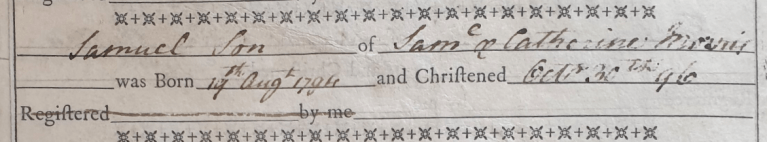 Samuel Son of Sam.l & Catharine Morris
was Born 19th Augt 1796 and Chriſtened Octr 30th 96
Regiſtered by me